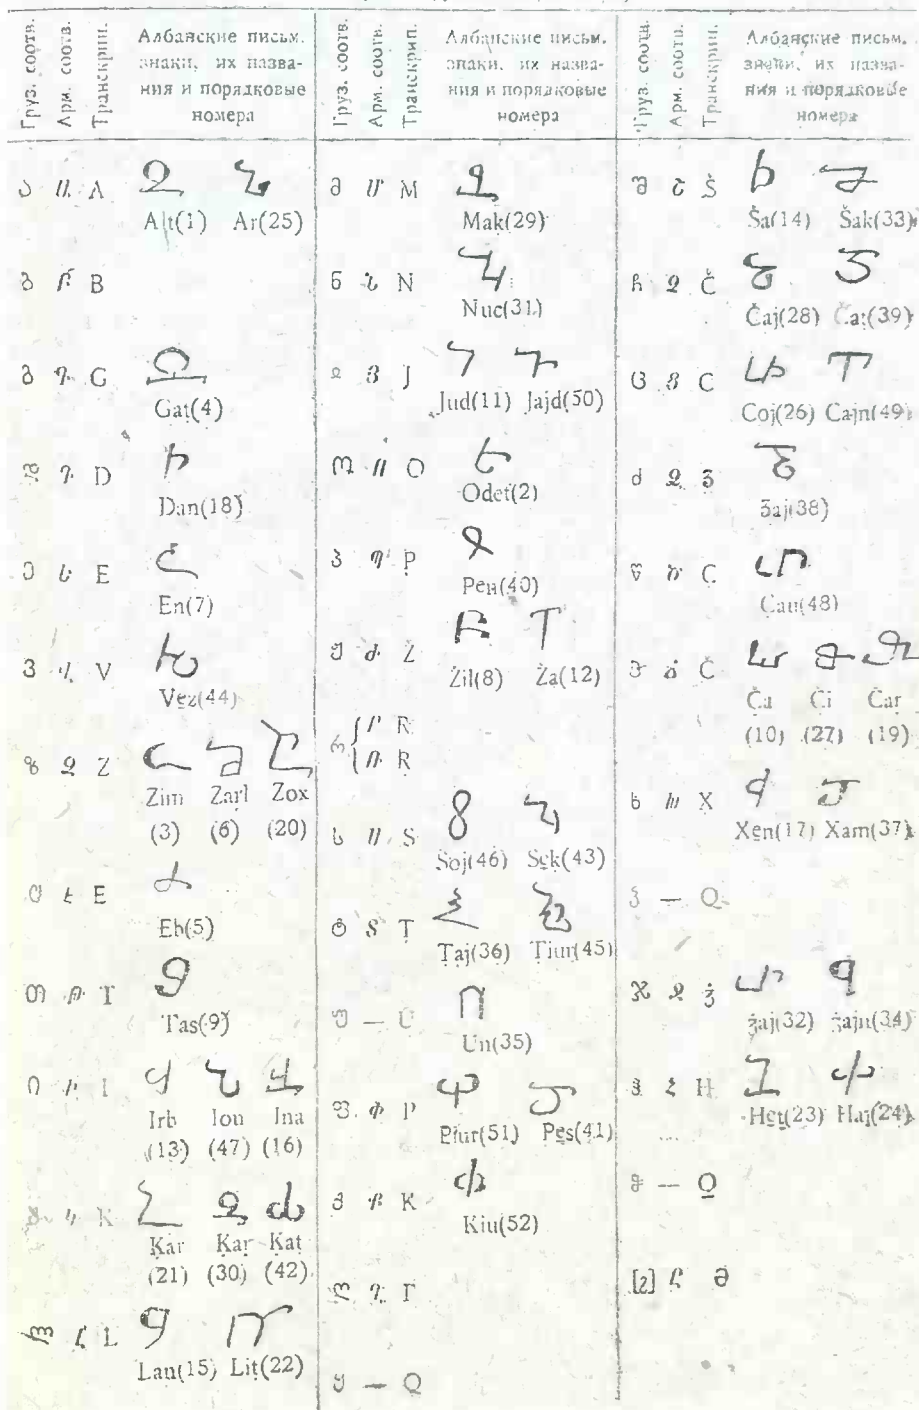 Груз. соотв.
Арм. соотв.
Транскрип.
Албанские письм.
знаки, их назва-
ния и порядковые
номера
ა Ա A
Alt(1) Ar(25)
ბ Բ B
გ Գ G
Gaṭ(4)
დ Դ D
Dan(18)
ე Ե E
En(7)
ვ Վ V
Vez(44)
ზ Զ Z
Zim Zarl Zox
(3) (6) (20)
ჱ Է E
Eb(5)
თ Թ T
Tas(9)
ი Ի I
Irb Ion Ina
(13) (47) (16)
კ Կ Ḳ
Ḳar Ḳaṛ Ḳaṭ
(21) (30) (42)
ლ Լ L
Lan(15) Liṭ(22)
Груз. соотв.
Арм. соотв.
Транскрип.
Албанские письм.
знаки, их назва-
ния и порядковые
номера
მ Մ M
Maḳ(29)
ნ Ն N
Nuc(31)
Յ J
Jud(11) Jajd(50)
ო Ո O
Odet(2)
პ Պ P̣
Pен(40)
ჟ Ժ Ž
Žil(8) Ža(12)
რ Ր R
Ռ Ṛ
ს Ս S
Soj(46) Seḳ(43)
ტ Տ Ṭ
Ṭaj(36) Ṭiur(45)
უ — U
Un(35)
ფ Փ P
Piur(51) Pes(41)
ქ Ք K
Kiu(52)
ღ Ղ Γ
ყ — Q
Груз. соотв.
Арм. соотв.
Транскрип.
Албанские письм.
знаки, их назва-
ния и порядковые
номера
შ Շ Š
Ša(14) Šak(33)
ჩ Չ Č
Čaj(28) Čaṭ(39)
ც Ց C
Coj(26) Cajn(49)
ძ Ձ ʒ
ʒaj(38)
წ Ծ C̣
C̣au(48)
ჭ Ճ Č̣
Č̣a Č̣i Č̣ar
(10) (27) (19)
ხ Խ X
Xen(17) Xam(37)
— Q
ჯ Ջ ǯ
ǯaj(32) ǯajn(34)
ჰ Հ H
Heṭ(23) Haj(24)
— Q̱
[ჷ] Ը Ə